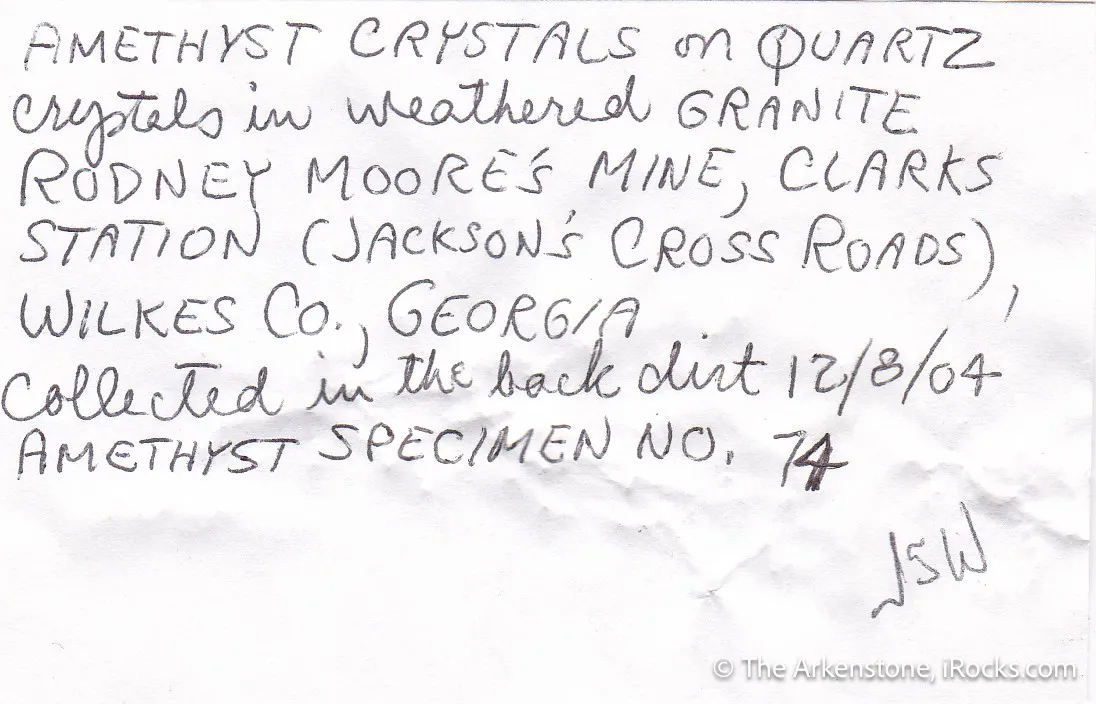 AMETHYST CRYSTALS on QUARTZ
crystals in weathered GRANITE
RODNEY MOORE'S MINE, CLARKS
STATION (JACKSON'S CROSS ROADS),
WILKES CO., GEORGIA
Collected in the back dirt 12/8/04
AMETHYST SPECIMEN NO. 74
JSW
© The Arkenstone, iRocks.com